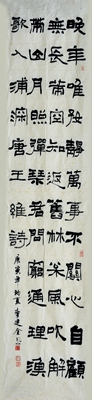 晚年唯好靜萬事不關心自顧
無長策空知返舊林松風吹解
帶山月照彈琴君問窮通理漁
歌入浦深唐王維詩
庚寅年